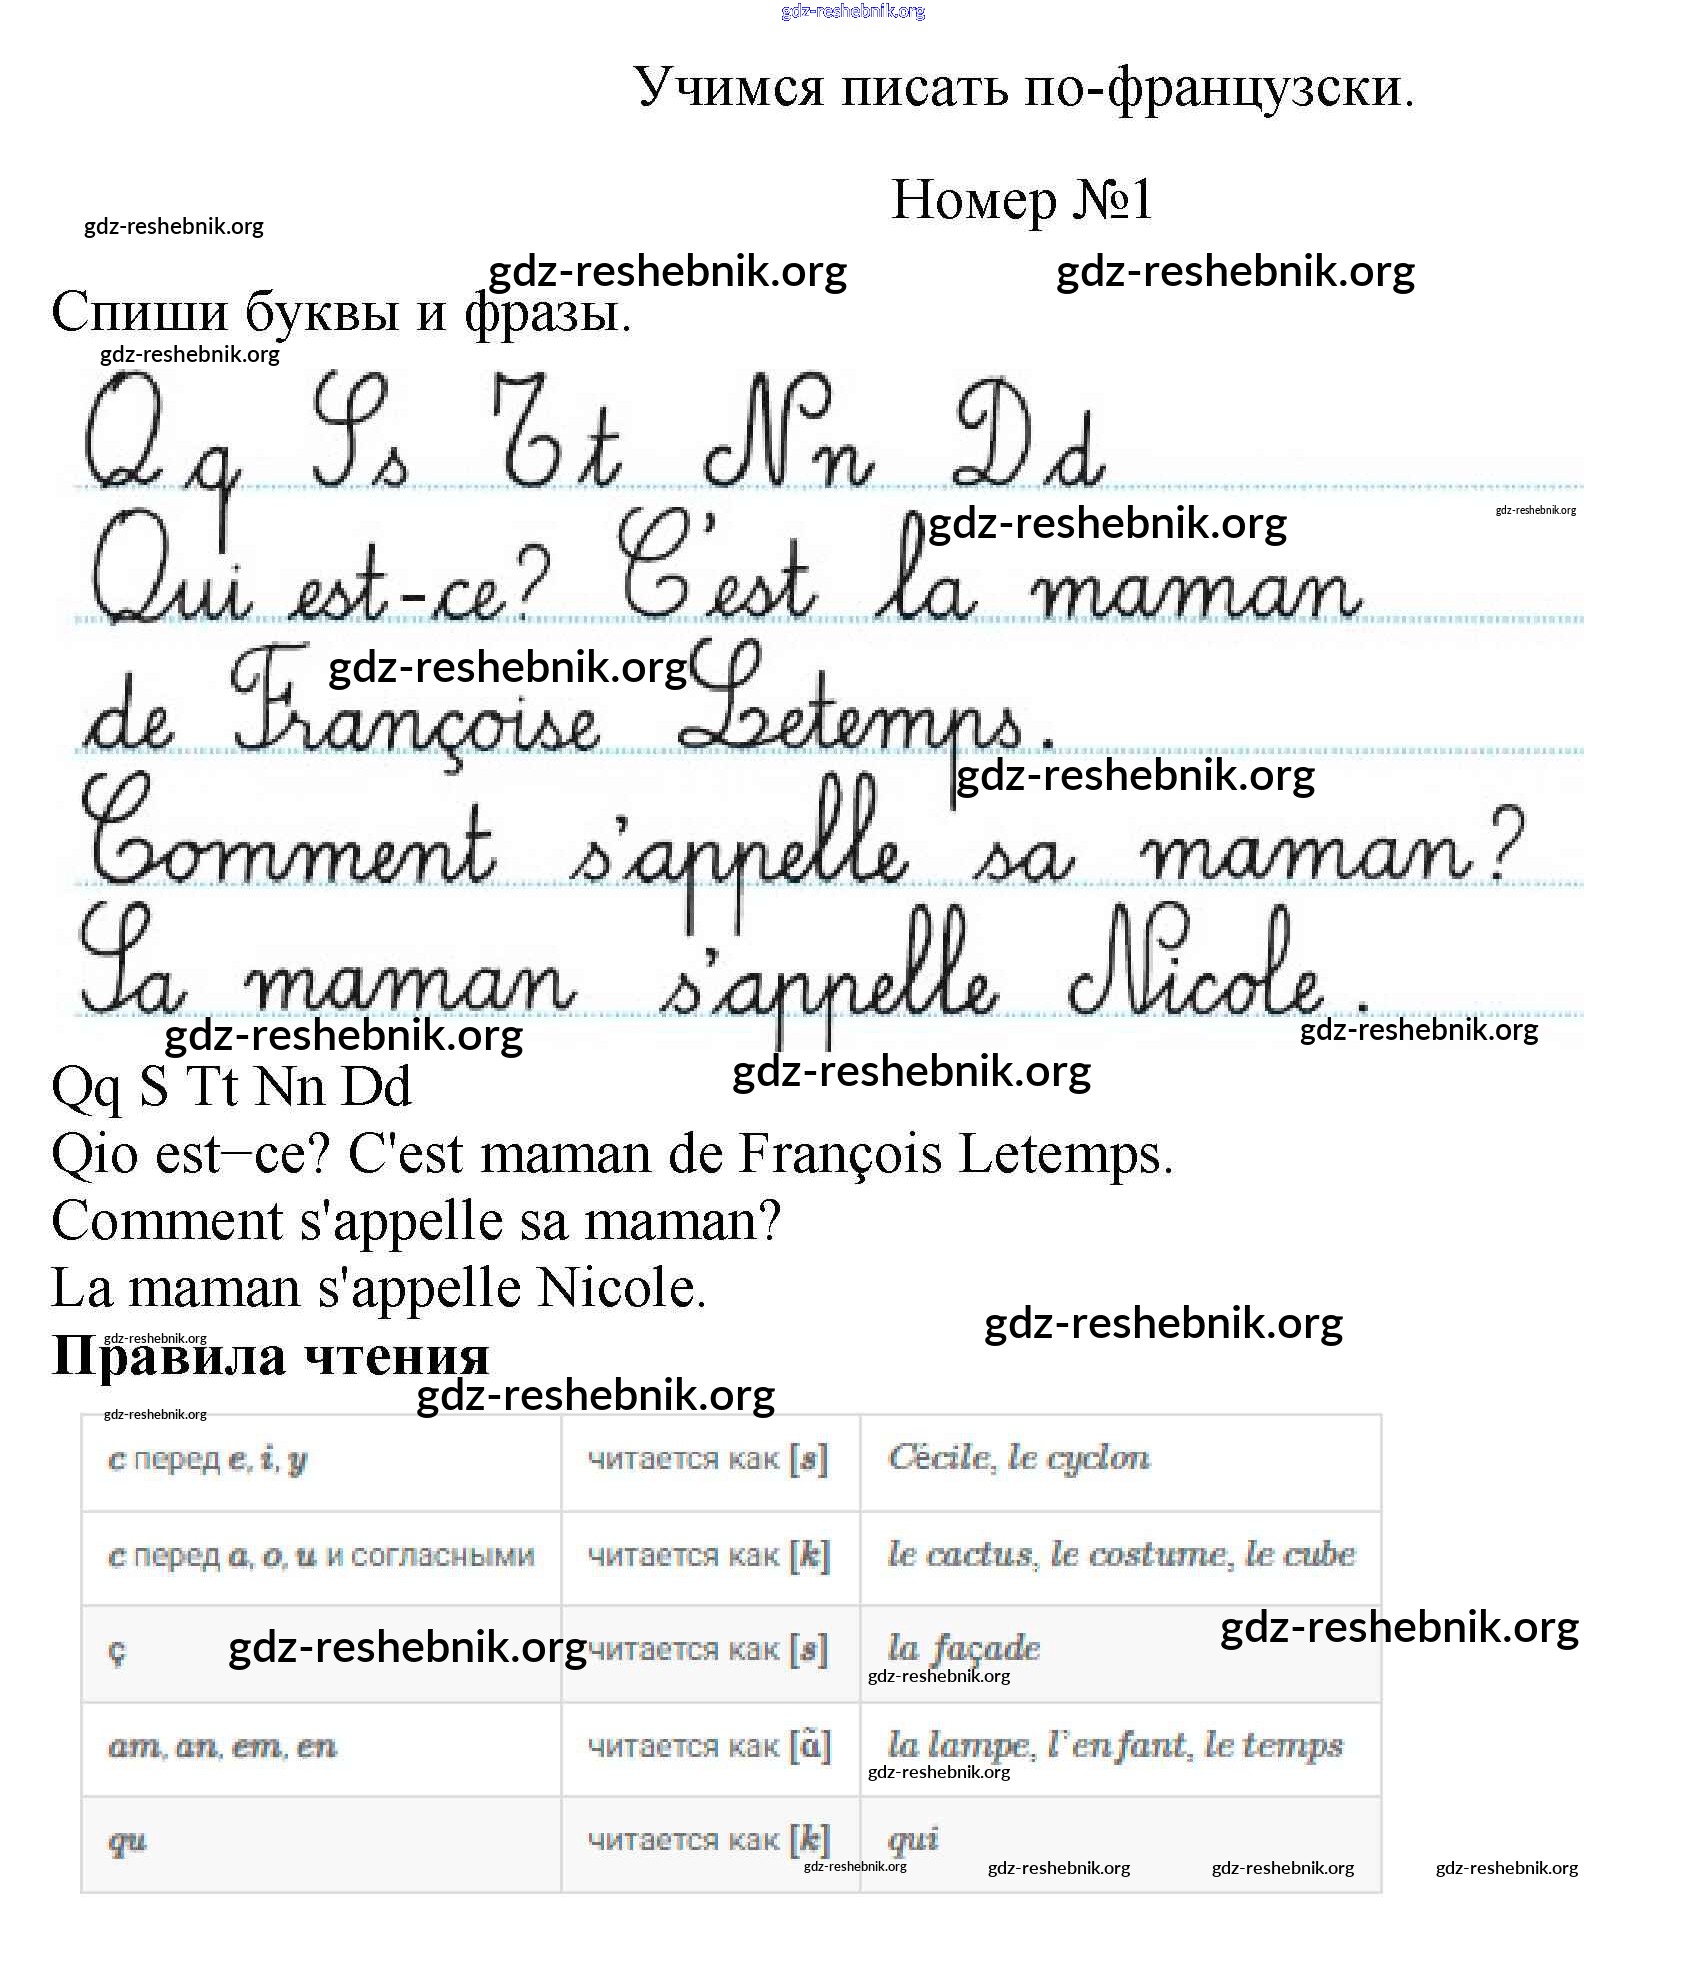 gdz-reshebnik.org
Учимся писать по-французски.
Номер №1
gdz-reshebnik.org
gdz-reshebnik.org gdz-reshebnik.org
Спиши буквы и фразы.
gdz-reshebnik.org
Qq Ss Tt Nn Dd
gdz-reshebnik.org gdz-reshebnik.org
Qui est-ce? C'est la maman
gdz-reshebnik.org
de Françoise Letemps.
gdz-reshebnik.org
Comment s'appelle sa maman?
Sa maman s'appelle Nicole.
gdz-reshebnik.org gdz-reshebnik.org
gdz-reshebnik.org
Qq S Tt Nn Dd
Qio est−ce? C'est maman de François Letemps.
Comment s'appelle sa maman?
La maman s'appelle Nicole.
gdz-reshebnik.org
gdz-reshebnik.org
Правила чтения
gdz-reshebnik.org
gdz-reshebnik.org
c перед e, i, y читается как [s] Cécile, le cyclon
c перед a, o, u и согласными читается как [k] le cactus, le costume, le cube
gdz-reshebnik.org
ç gdz-reshebnik.org читается как [s] la façade
gdz-reshebnik.org
am, an, em, en читается как [ã] la lampe, l`enfant, le temps
gdz-reshebnik.org
qu читается как [k] qui
gdz-reshebnik.org gdz-reshebnik.org gdz-reshebnik.org gdz-reshebnik.org